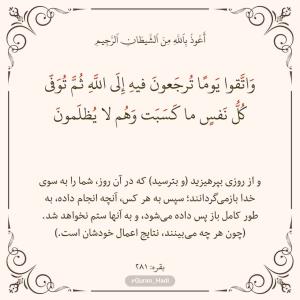 أَعُوذُ بِاللَّهِ مِنَ الشَّيْطَانِ الرَّجِيمِ
وَاتَّقوا يَومًا تُرجَعونَ فيهِ إِلَى اللَّهِ ثُمَّ تُوَفّىٰ
كُلُّ نَفسٍ ما كَسَبَت وَهُم لا يُظلَمونَ
و از روزی بپرهیزید (و بترسید) که در آن روز، شما را به سوی
خدا بازمی‌گردانند؛ سپس به هر کس، آنچه انجام داده، به
طور کامل باز پس داده می‌شود، و به آنها ستم نخواهد شد.
(چون هر چه می‌بینند، نتایج اعمال خودشان است.)
بقره: ۲۸۱
@Quran_Hadi